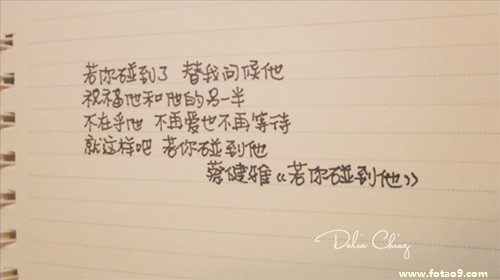 若你碰到了 替我问候他
祝福他和他的另一半
不在乎他 不再爱也不再等待
就这样吧 若你碰到他
蔡健雅《若你碰到他》
Delia Ching
www.fotao9.com